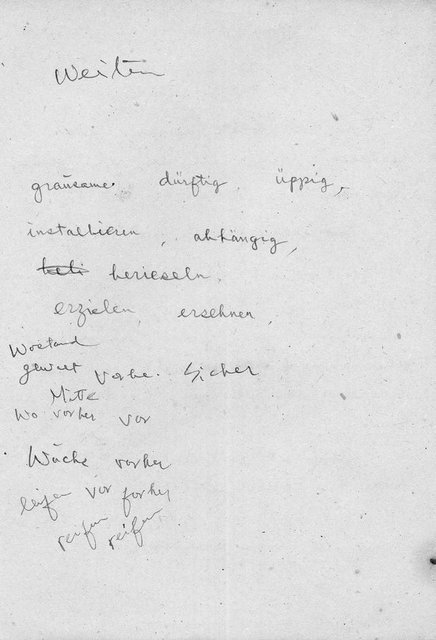 Weiten
grausame. dürftig, üppig,
installieren, abhängig,
beli berieseln,
erzielen, ersehnen,
Wostand
gewust Vorhe. Sicher
Mitte
Wo vorher vor
Wäche vorher
vor forher
reifen reifen